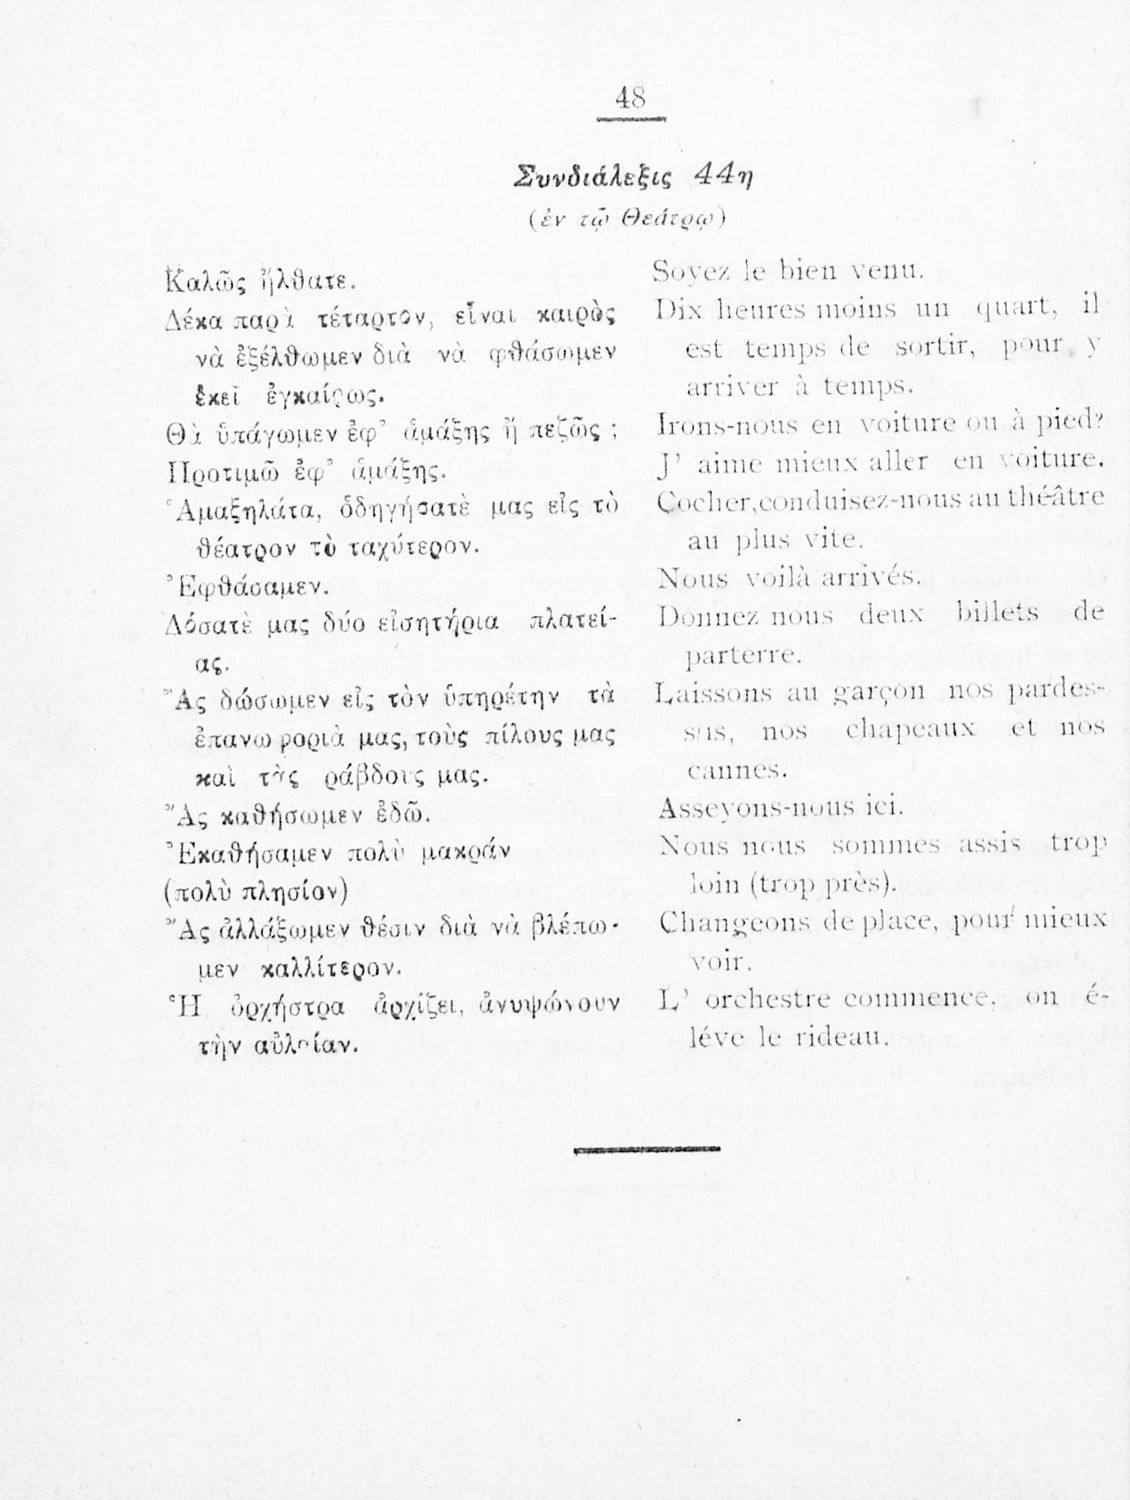 48
Συνδιάλεξις 44η
(ἐν τῷ Θεάτρῳ)
Καλῶς ἤλθατε.
Δέκα παρὰ τέταρτον, εἶναι καιρὸς
νὰ ἐξέλθωμεν διὰ νὰ φθάσωμεν
ἐκεῖ ἐγκαίρως.
Θὰ ὑπάγωμεν ἐφ᾽ ἁμάξης ἢ πεζῶς ;
Προτιμῶ ἐφ᾽ ἁμάξης.
Ἁμαξηλάτα, ὁδηγήσατὲ μας εἰς τὸ
θέατρον τὸ ταχύτερον.
Ἐφθάσαμεν.
Δόσατὲ μας δύο εἰσητήρια πλατεί-
ας.
Ἂς δώσωμεν εἰς τὸν ὑπηρέτην τὰ
ἐπανωφοριὰ μας, τοὺς πίλους μας
καὶ τὰς ράβδους μας.
Ἂς καθήσωμεν ἐδῶ.
Ἐκαθήσαμεν πολὺ μακράν
(πολὺ πλησίον)
Ἂς ἀλλάξωμεν θέσιν διὰ νὰ βλέπω-
μεν καλλίτερον.
Ἡ ὀρχήστρα ἀρχίζει, ἀνυψώνουν
τὴν αὐλαίαν.
Soyez le bien venu.
Dix heures moins un quart, il
est temps de sortir, pour y
arriver à temps.
Irons-nous en voiture ou à pied?
J' aime mieux aller en voiture.
Cocher,conduisez-nous au théâtre
au plus vite.
Nous voilà arrivés.
Donnez nous deux billets de
parterre.
Laissons au garçon nos pardes-
sus, nos chapeaux et nos
cannes.
Asseyons-nous ici.
Nous nous sommes assis trop
loin (trop près).
Changeons de place, pour mieux
voir.
L' orchestre commence, on é-
léve le rideau.